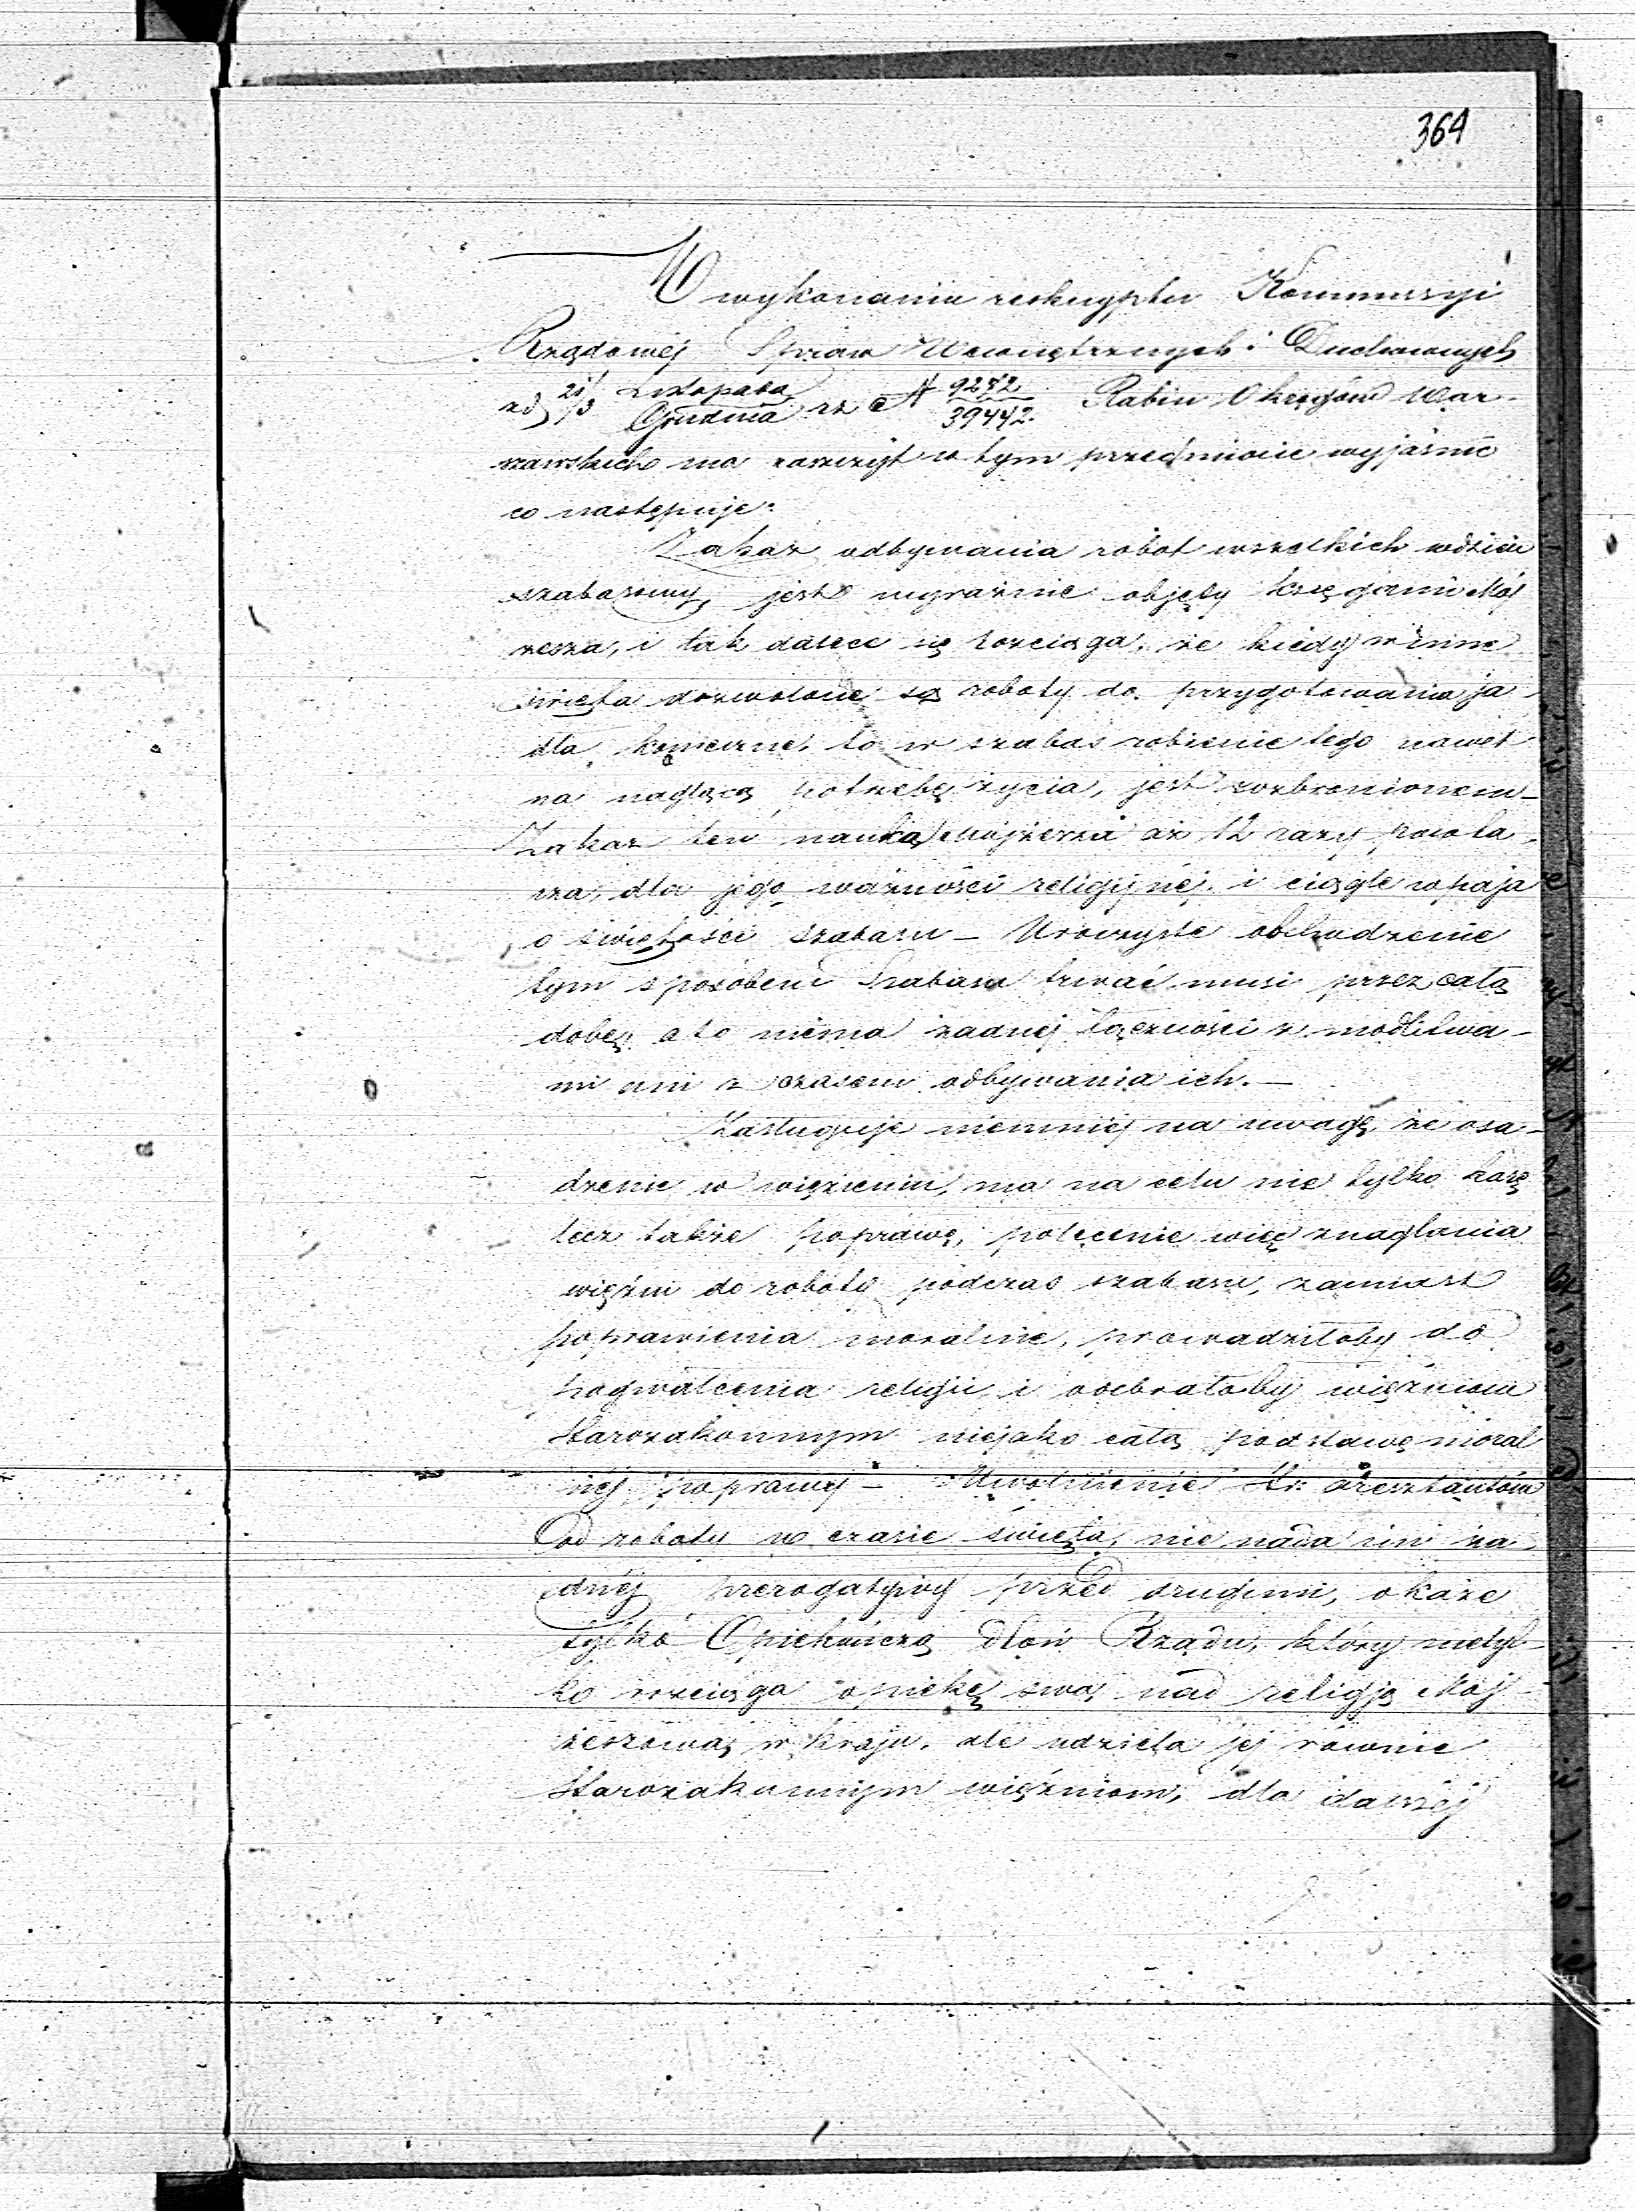 364
W wykonaniu reskryptu Kommissyi
Rządowej Spraw Wewnętrznych i Duchownych
z d 21/3 Listopada/Grudnia rz № 9282/39442. Rabin Okręgów War-
szawskich ma zaszczyt w tym przedmiocie wyjaśnić
co następuje:
Zakaz odbywania robot wszelkich w dzień
szabasowy, jest wyraźnie objęty księgami Moj
żesza, i tak dalece się rozciąga, że kiedy w inne
święta dozwolone są roboty do przygotowania ja-
dła konieczne, to w szabas robienie tego nawet
na naglącą potrzebę życia, jest wzbronionem –
Zakaz ten nauka Mojżesza aż 12 razy powta-
rza, dla jego ważności religijnéj, i ciągle wpaja
o świętości szabasu – Uroczyste obchodzenie
tym sposobem Szabasu trwać musi przez całą
dobę, a to niema żadnéj łączności z modlitwa-
mi ani z czasem odbywania ich. –
Zasługuje niemniéj na uwagę, że osa-
dzenie w więzieniu, ma na celu nie tylko karę
lecz także poprawę, polecenie więc znaglania
więźni do roboty podczas szabasu, zamiast
poprawienia moralnie, prowadziłoby do
pogwałcenia religii i odebrałoby więźniom
Starozakonnym niejako całą podstawę moral
néj poprawy – Uwolnienie St. aresztantów
od roboty w czasie święta, nie nada im ża-
dnéj prerogatywy przed drugimi, okaże
tylko Opiekuńczą dłoń Rządu, który nietyl-
ko rozciąga opiekę swą nad religją Moj-
żeszową w kraju, ale udziela jéj równie
Starozakonnym więźniom, dla